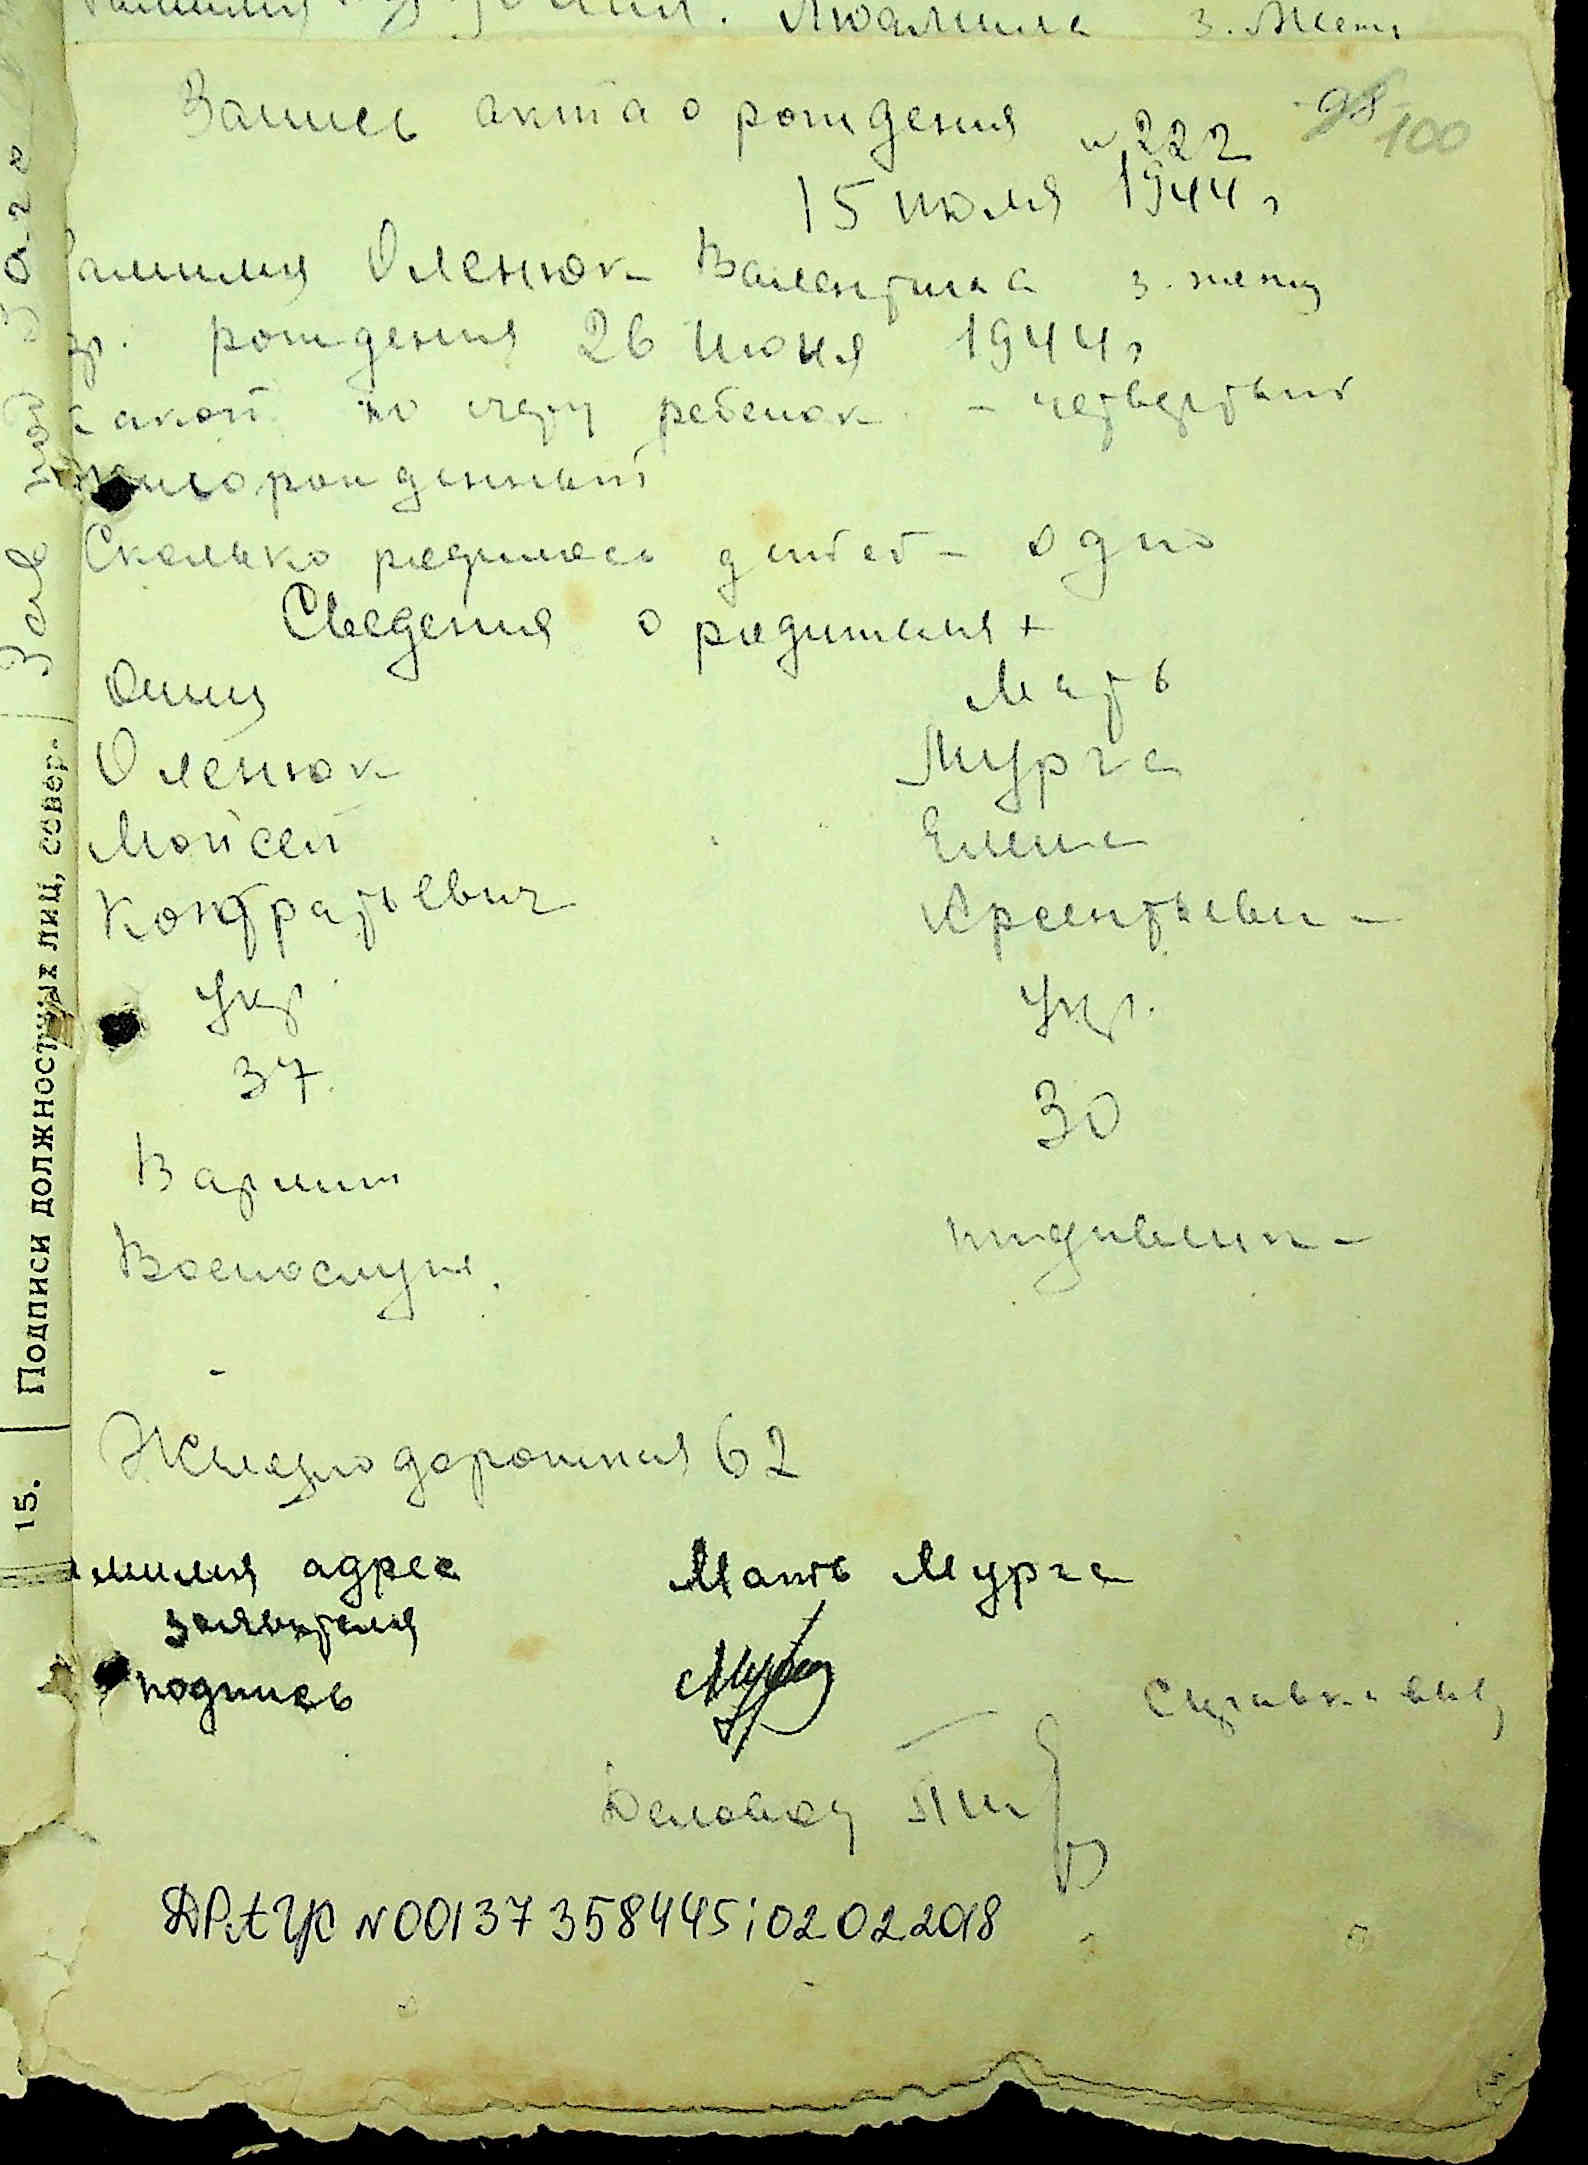 Людмила 3. жен
Запись акта о рождения N 222
98 100
15 июля 1944 г
Фамилия Оленюк Валентина 3. женщ
вр. рождения 26 июня 1944 г
какой по счету ребенок - четвертый
живорожденный
Сколько родилось дитей - одно
Сведения о родителях
Отец Мать
Оленюк Мурга
Мойсей Елена
Контратьевич Арсентьевн-
Укр. Укр.
37 30
В армии
Военослуж. иждивенк-
Железнодорожная 62
амилия адрес Мать Мурга
заявителя
подпись
Справка выд
Деловод
ДРАЦС N 00137358445 i 02 02 2018
15. Подписи должностных лиц, совер.
Зав